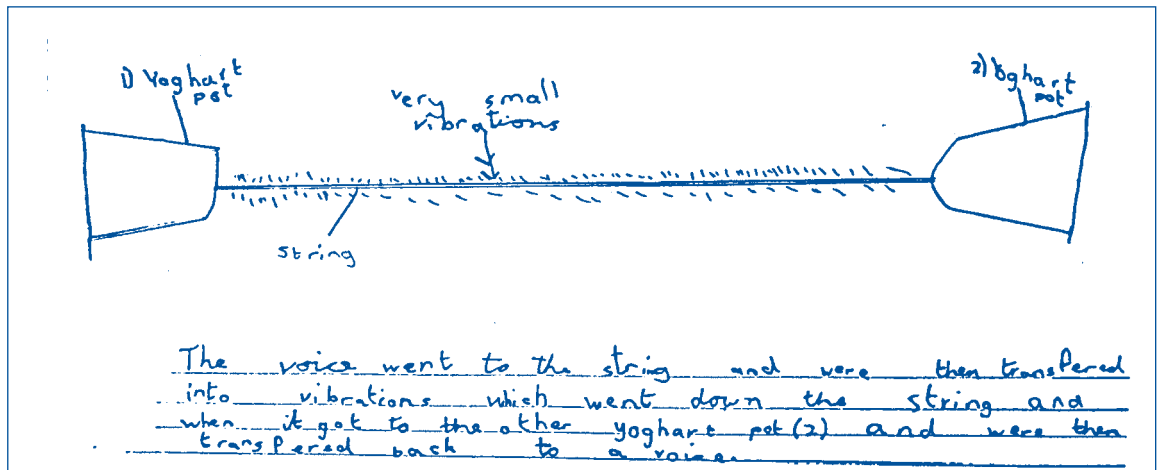 1) Yoghart
pot
2) Yoghart
pot
very small
vibrations
string
The voice went to the string and were then transfered
into vibrations which went down the string and
when it got to the other yoghart pot (2) and were then
transfered back to a voice.